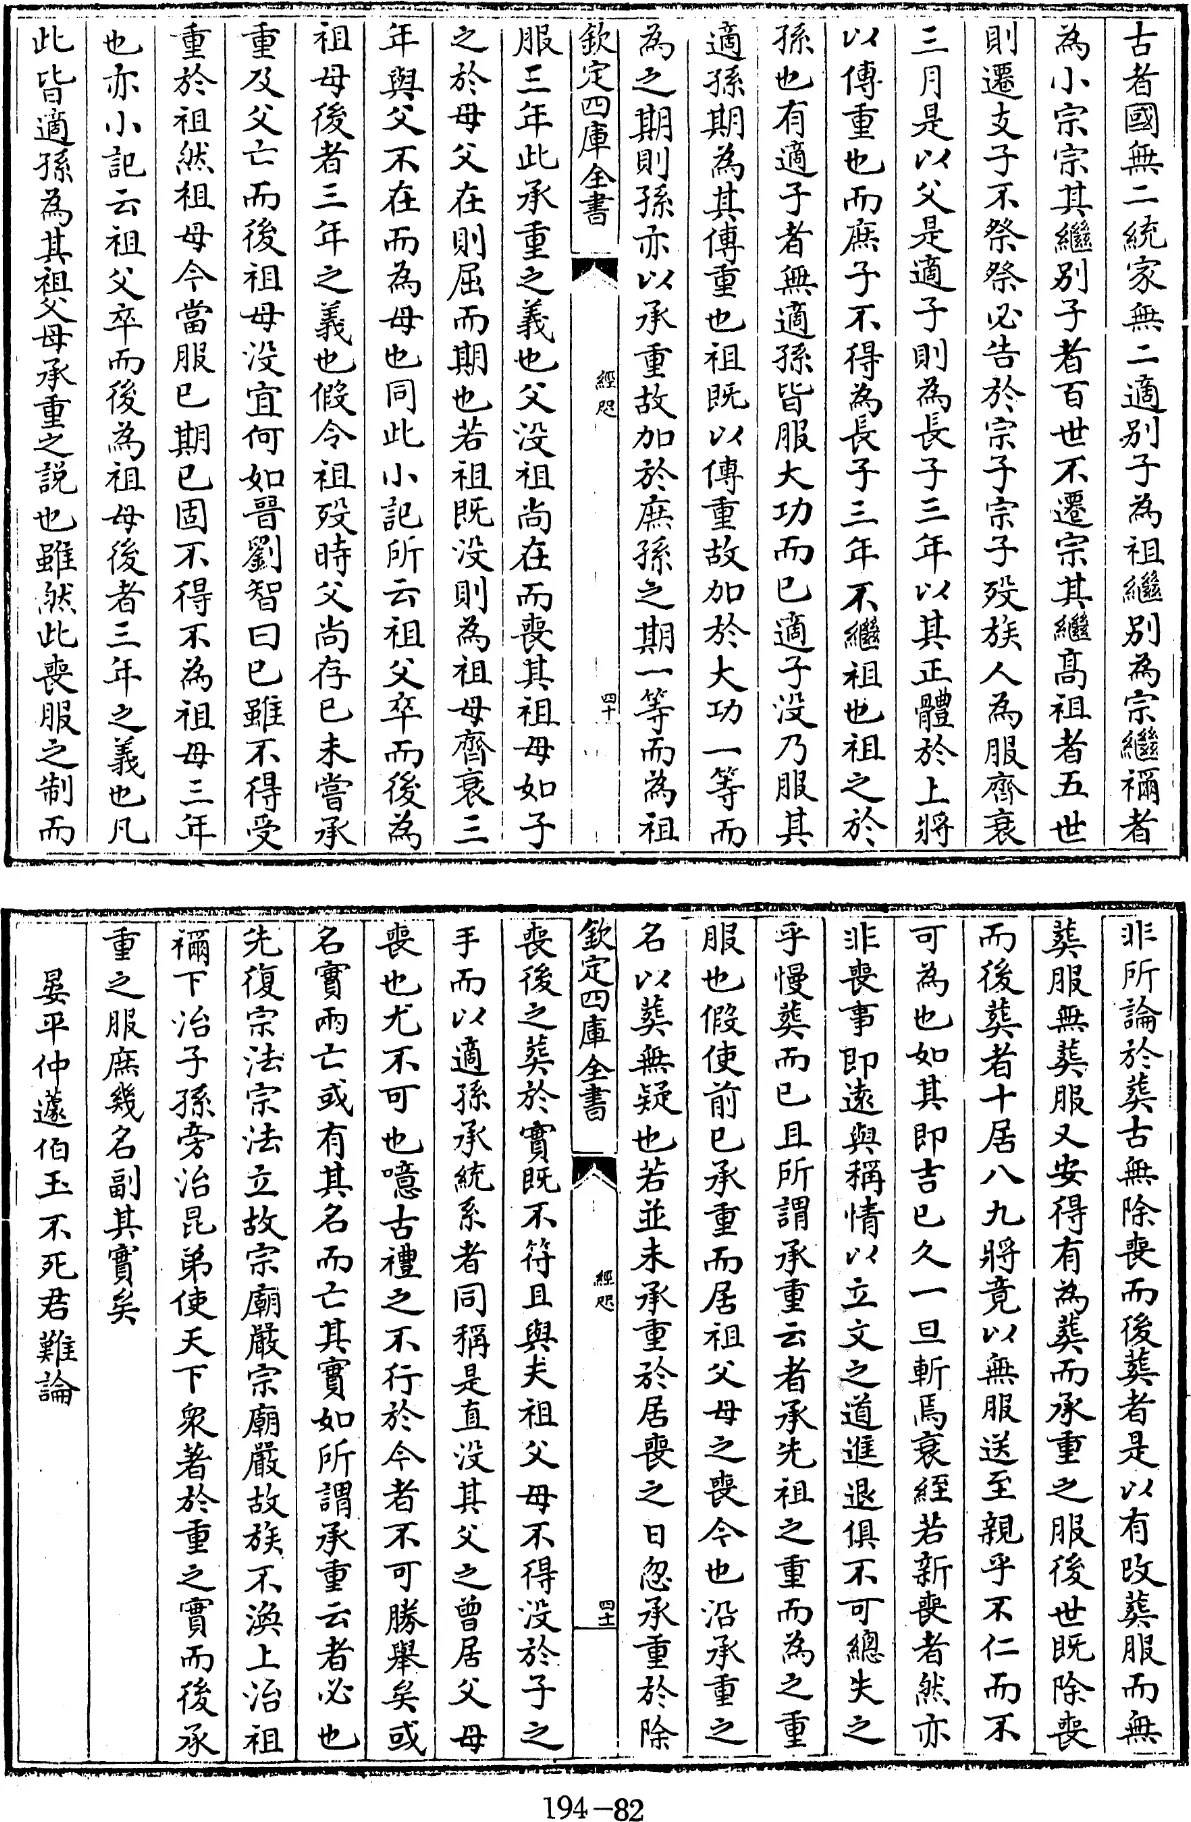 古者國無二統家無二適别子為祖繼别為宗繼禰者
為小宗宗其繼别子者百世不遷宗其繼髙祖者五世
則遷支子不祭祭必告於宗子宗子殁族人為服齊衰
三月是以父是適子則為長子三年以其正體於上將
以傳重也而庶子不得為長子三年不繼祖也祖之於
孫也有適子者無適孫皆服大功而已適子没乃服其
適孫期為其傳重也祖既以傳重故加於大功一等而
為之期則孫亦以承重故加於庶孫之期一等而為祖
欽定四庫全書
經咫
四十
服三年此承重之義也父没祖尚在而喪其祖母如子
之於母父在則屈而期也若祖既没則為祖母齊衰三
年與父不在而為母也同此小記所云祖父卒而後為
祖母後者三年之義也假令祖殁時父尚存已未嘗承
重及父亡而後祖母没宜何如晉劉智曰已雖不得受
重於祖然祖母今當服已期已固不得不為祖母三年
也亦小記云祖父卒而後為祖母後者三年之義也凡
此皆適孫為其祖父母承重之説也雖然此喪服之制而
非所論於葬古無除喪而後葬者是以有改葬服而無
葬服無葬服又安得有為葬而承重之服後世既除喪
而後葬者十居八九將竟以無服送至親乎不仁而不
可為也如其即吉已久一旦斬焉衰絰若新喪者然亦
非喪事即逺與稱情以立文之道進退俱不可總失之
乎慢葬而已且所謂承重云者承先祖之重而為之重
服也假使前已承重而居祖父母之喪今也沿承重之
名以葬無疑也若並未承重於居喪之日忽承重於除
欽定四庫全書
經咫
四十一
喪後之葬於實既不符且與夫祖父母不得没於子之
手而以適孫承統系者同稱是直没其父之曾居父母
喪也尤不可也噫古禮之不行於今者不可勝舉矣或
名實兩亡或有其名而亡其實如所謂承重云者必也
先復宗法宗法立故宗廟嚴宗廟嚴故族不渙上治祖
禰下治子孫旁治昆弟使天下衆著於重之實而後承
重之服庶幾名副其實矣
晏平仲蘧伯玉不死君難論
194-82